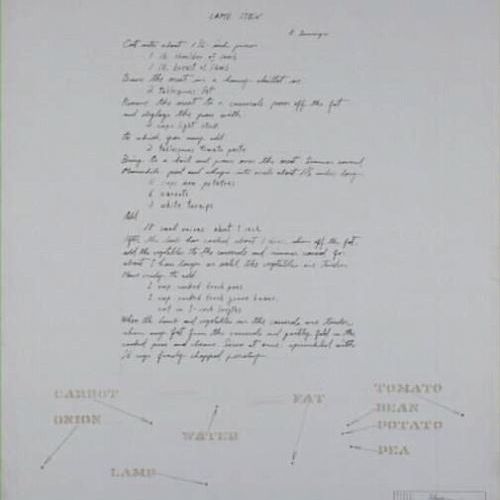 LAMB STEW
Cut into about 1 1/2 inch pieces
1 lb. shoulder of lamb
1 lb. breast of lamb
Brown the meat in a heavy skillet in
2 tablespoons fat
Remove the meat to a casserole pour off the fat
and deglaze the pan with
cups light stock
to which you may add
2 tablespoons tomato paste
Bring to a boil and pour over the meat. Simmer covered
Meanwhile peel and shape into ovals about 1 1/2 inches long
potatoes
6 carrots
3 white turnips
Add
18 small onions about 1 inch
After the lamb has cooked about 1 hour, skim off the fat,
add the vegetables to the casserole and simmer covered for
about 1 hour longer or until the vegetables are tender
Have ready to add
1 cup cooked fresh peas
1 cup cooked fresh green beans,
cut in 1-inch lengths
When the lamb and vegetables in the casserole are tender,
skim any fat from the casserole and quickly fold in the
cooked peas and beans. Serve at once, sprinkled with
1/4 cup finely chopped parsley
CARROT
ONION
WATER
LAMB
FAT
TOMATO
BEAN
POTATO
PEA